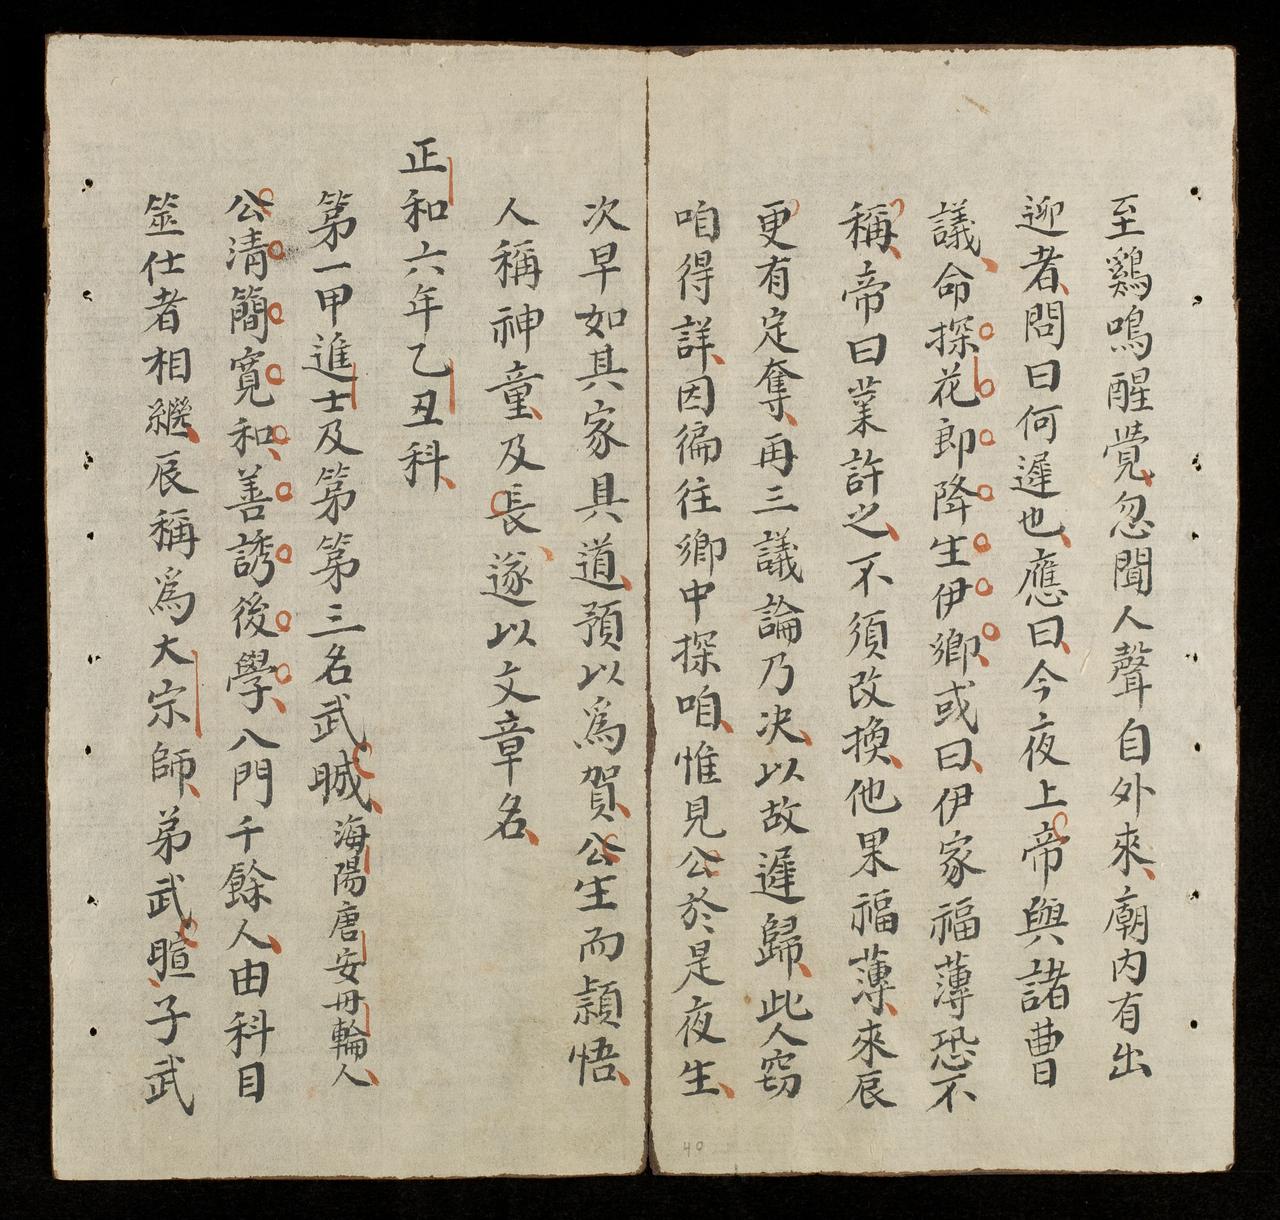 至鷄鳴醒覺忽聞人聲自外來廟內有出
迎者問曰何遲也應曰今夜上帝與諸曹
議命探花郎降生伊鄉或曰伊家福薄恐不
稱帝曰業許之不須改換他果福薄來辰
更有定奪再三議論乃决以故遲歸此人窃
咱得詳因徧往鄉中探咱惟見公於是夜生
次早如其家具道預以爲賀公生而穎悟
人稱神童及長遂以文章名
正和六年乙丑科
第一甲進士及第第三名武晠海陽唐安丹輪人
公清簡寬和善誘後學八門千餘人由科目
筮仕者相繼辰稱爲大宗師弟武暄子武
40